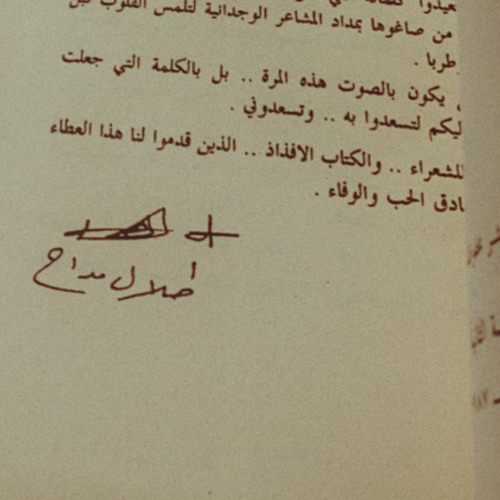 من صاغوها بمداد المشاعر الوجدانية لتلمس القلوب قبل
طربا .
يكون بالصوت هذه المرة .. بل بالكلمة التي جعلت
ليكم لتسعدوا به .. وتسعدوني .
للشعراء .. والكتاب الافذاذ .. الذين قدموا لنا هذا العطاء
ادق الحب والوفاء .
طلال مداح